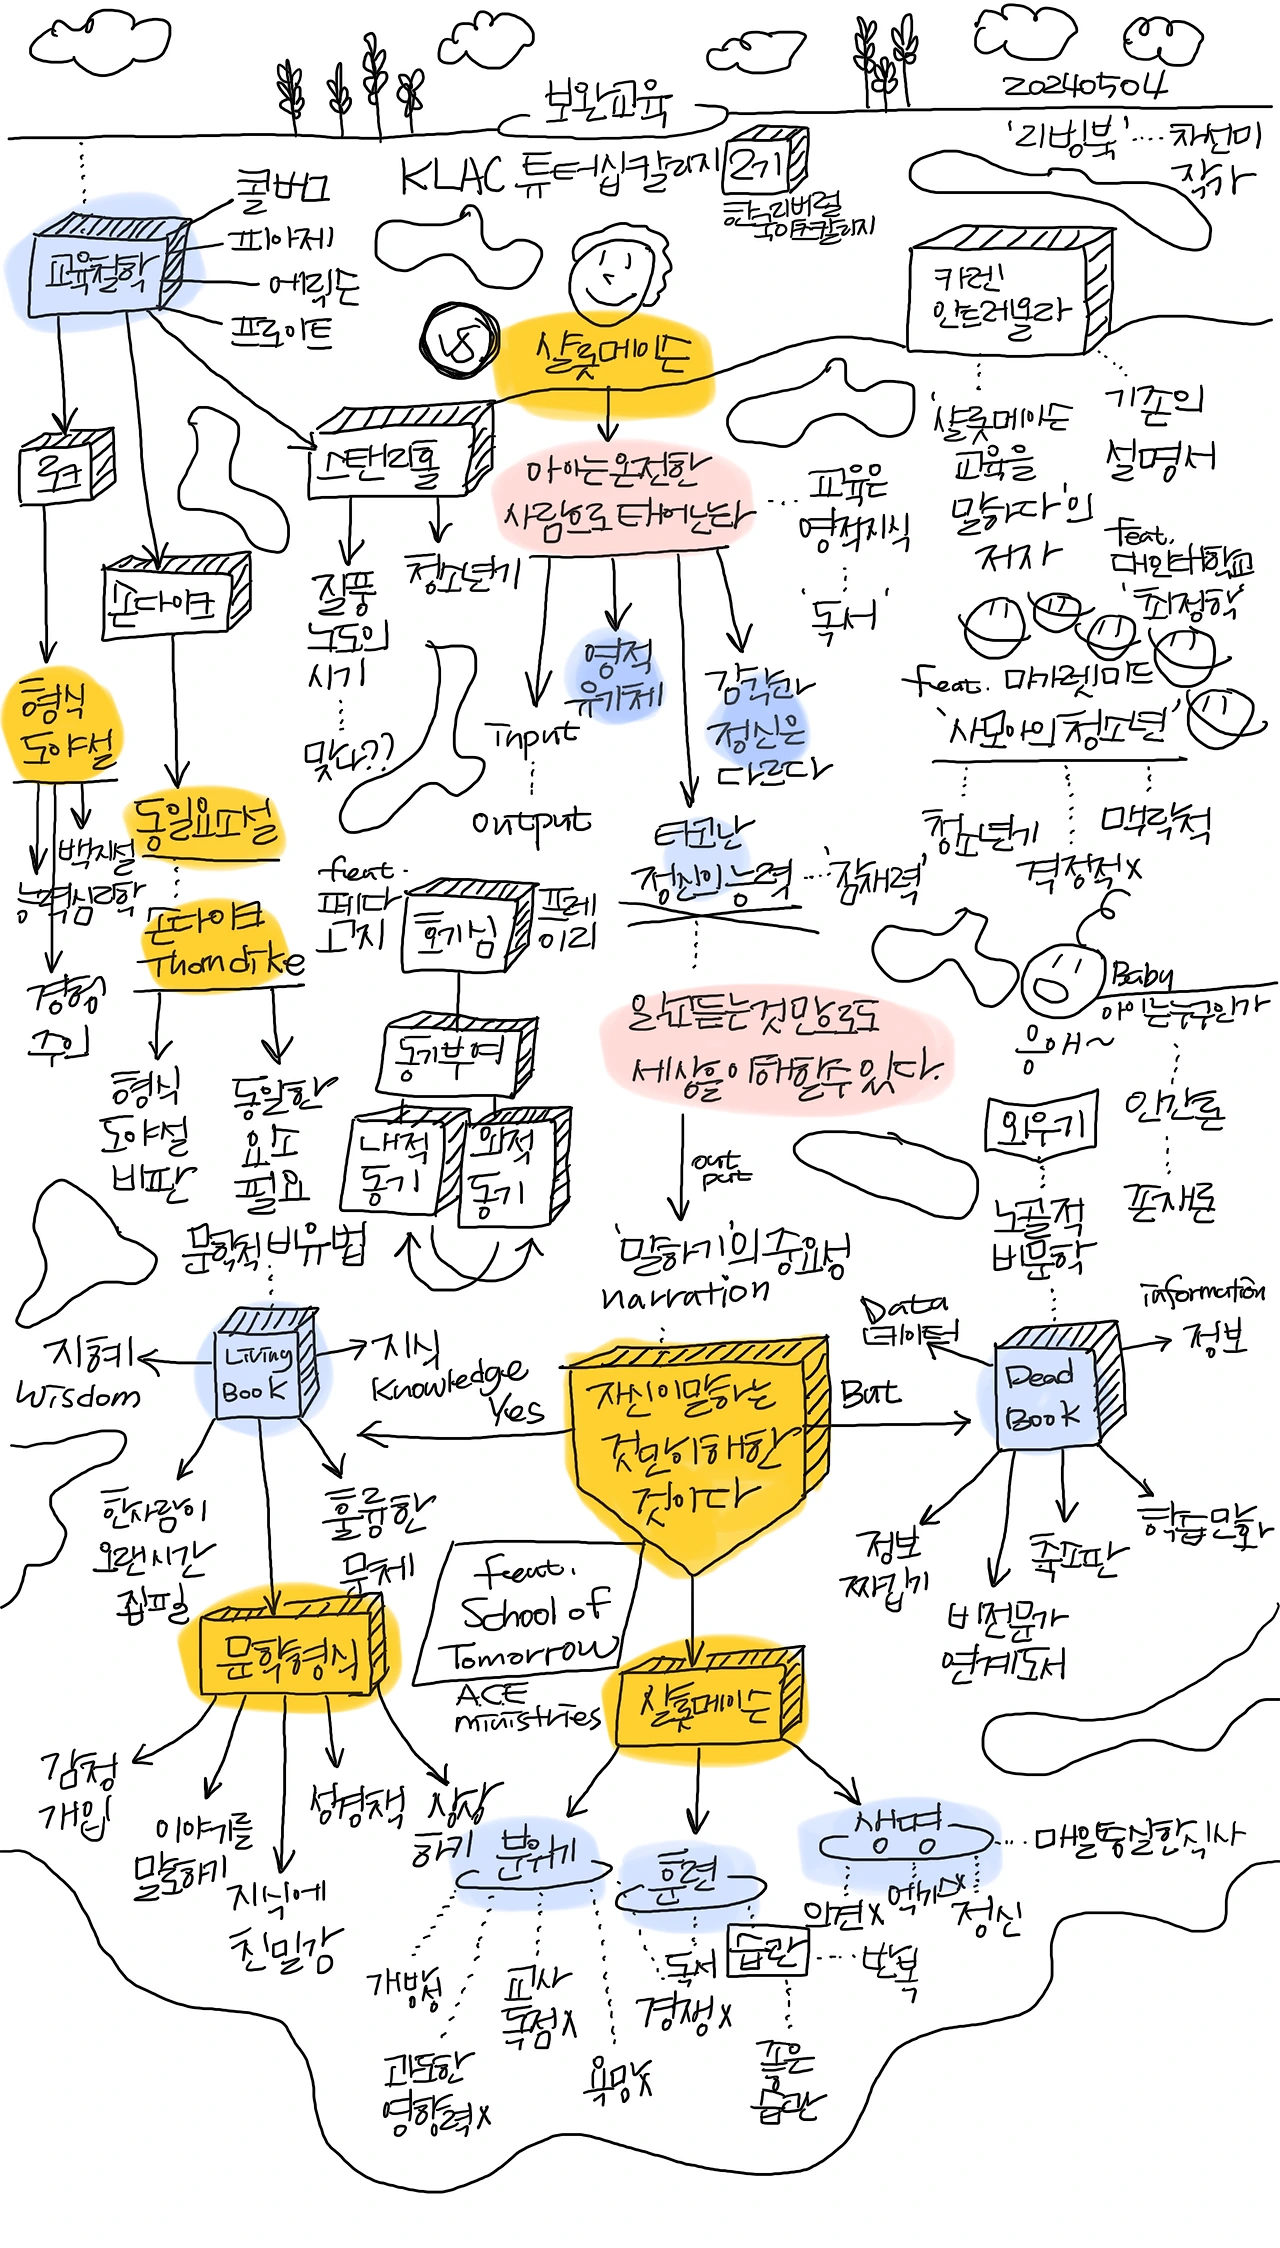 보완교육
20240504
KLAC 튜터십칼리지 2기
한국리버럴
아츠칼리지
'리빙북'····차선미
작가
교육철학
콜버그
피아제
에릭슨
프로이트
VS
샬롯메이슨
카렌
안드레올라
로크
손다이크
스탠리홀
질풍
노도의
시기
맞다??
청소년기
아이는온전한
사람으로태어난다
교육은
영적지식
'독서'
'샬롯메이슨
교육을
말하다'의
저자
기존의
설명서
feat.
대안대학교
'최정학'
feat. 마가렛미드
'사모아의청소년'
청소년기
격정적x
맥락적
형식
도야설
백지설
능력심리학
경험
주의
동일요소설
손다이크
Thorndike
형식
도야설
비판
동일한
요소
필요
input
output
영적
유기체
감각과
정신은
다르다
타고난
정신의능력····'잠재력'
feat.
페다
고지
호기심
프레
이리
동기부여
내적
동기
외적
동기
읽고듣는것만으로도
세상을이해할수있다.
output
'말하기'의중요성
narration
Baby
아이는누구인가
응애~
인간론
존재론
외우기
노골적
비문학
문학적비유법
Living
Book
지혜
wisdom
지식
Knowledge
Yes
자신이말하는
것만이해한
것이다
But
Data
데이터
Dead
Book
information
정보
한사람이
오랜시간
집필
훌륭한
문체
정보
짜깁기
비전문가
연계도서
축소판
학습만화
문학형식
feat.
School of
Tomorrow
ACE
ministries
샬롯메이슨
감정
개입
이야기를
말하기
지식에
친밀감
성경책
상상
하기
분위기
훈련
생명
매일충실한식사
의견x
억지x
정신
개방성
과도한
영향력x
교사
독점x
욕망x
독서
경쟁x
습관
반복
좋은
습관